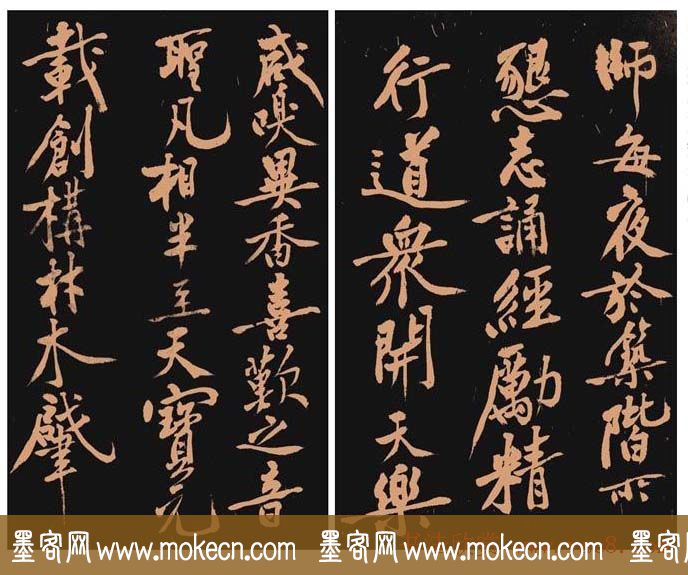 師每夜於築階所
懇志誦經勵精
行道眾聞天樂
咸嗅異香喜歎之音
聖凡相半至天寶元
載創構材木肇
墨客网 www.mokecn.com 墨客网 www.mokecn.com 墨客网 www.mokecn